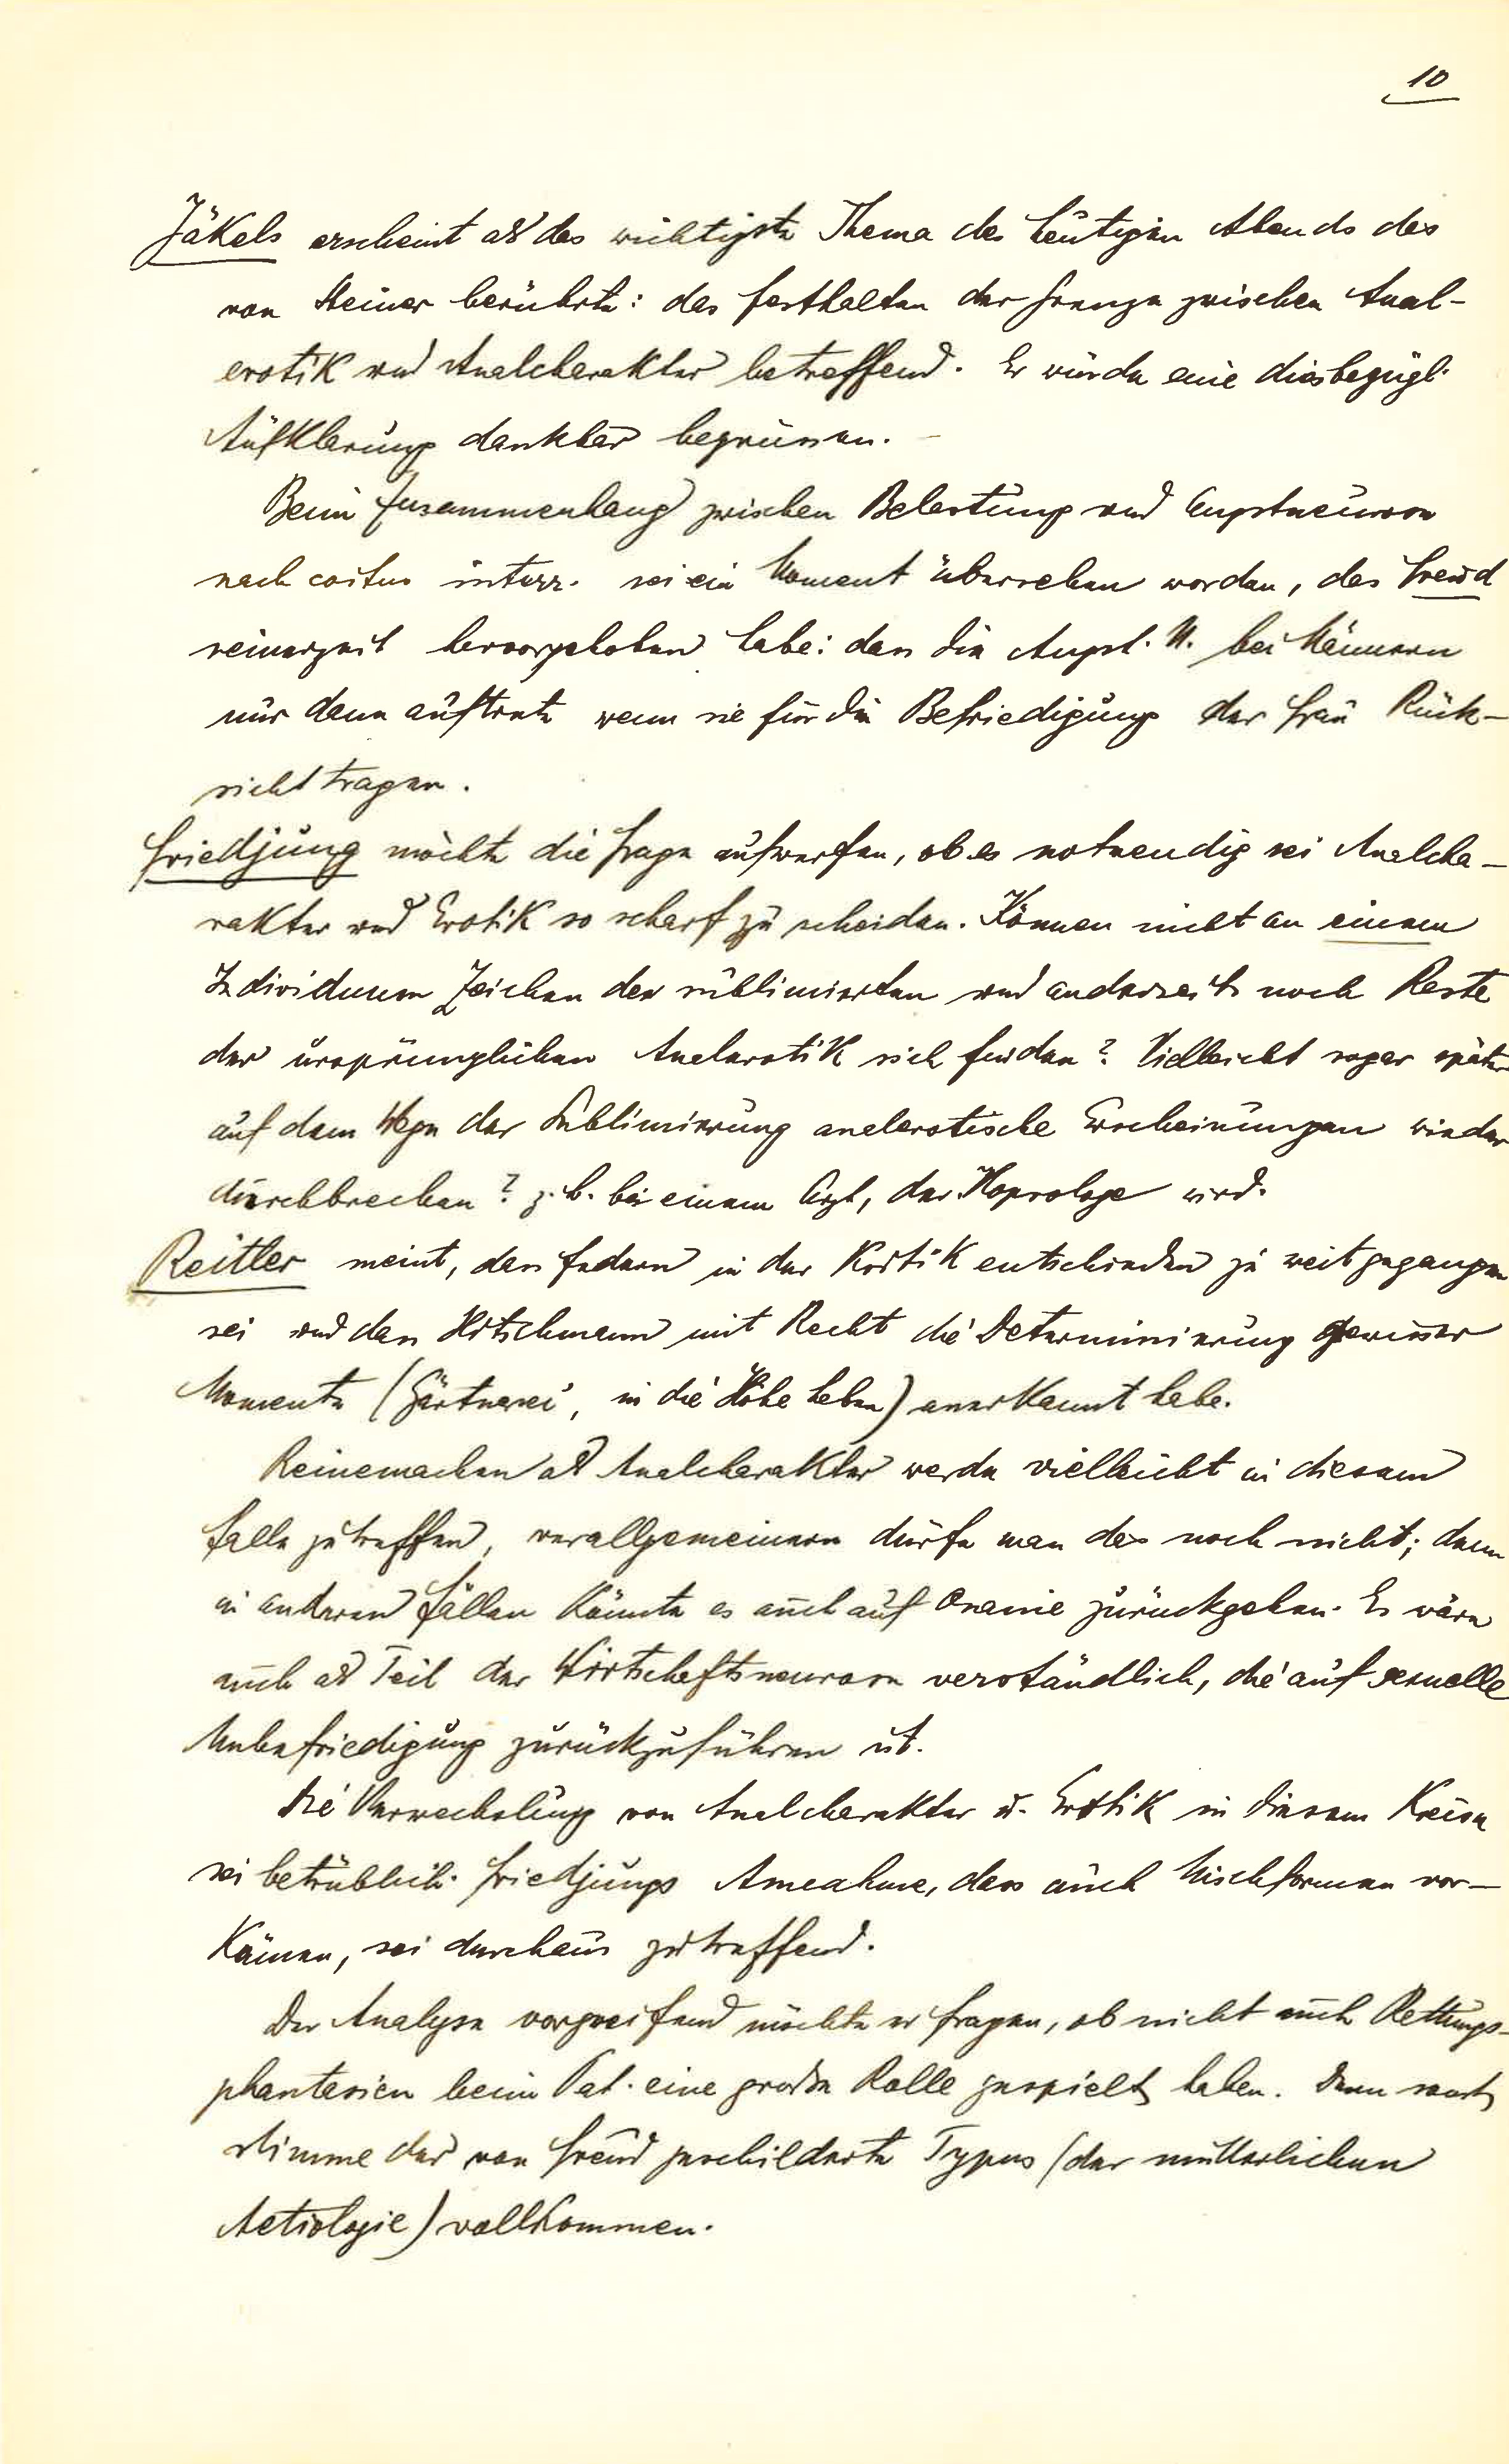 10
Jäkels erscheint als das wichtigste Thema des heutigen Abends das
von Steiner berührte: das Festhalten der Grenze zwischen Anal-
erotik und Analcharakter betreffend. Er würde eine diesbezügl.
Aufklärung dankbar begrüssen. –
Beim Zusammenhang zwischen Belastung und Angstneurose
nach coitus interr. sei ein Moment übersehen worden, das Freud
seinerzeit hervorgehoben habe: dass die Angst. N. bei Männern
nur dann auftrete wenn sie für die Befriedigung der Frau Rück-
sicht tragen.
Friedjung möchte die Frage aufwerfen, ob es notwendig sei Analcha-
rakter und Erotik so scharf zu scheiden. Können nicht an einem
Individuum Zeichen der sublimierten und anderseits noch Reste
der ursprünglichen Analerotik sich finden? Vielleicht sogar später
auf dem Wege der Sublimierung analerotische Erscheinungen wieder
durchbrechen? z. B. bei einem Arzt, der Koprologe wird.
Reitler meint, dass Federn in der Kritik entschieden zu weit gegangen
sei und dass Hitschmann mit Recht die Determinierung gewisser
Momente (Gärtnerei, in die Höhe heben) anerkannt habe.
Reinemachen als Analcharakter werde vielleicht in diesem
Falle zutreffen, verallgemeinern dürfe man das noch nicht; denn
in anderen Fällen könnte es auch auf Onanie zurückgehen. Es wäre
auch als Teil der Wirtschaftsneurose verständlich, die auf sexuelle
Unbefriedigung zurückzuführen ist.
Die Verwechslung von Analcharakter u. Erotik in diesem Kreise
sei betrüblich. Friedjungs Annahme, dass auch Mischformen vor-
kämen, sei durchaus zutreffend.
Der Analyse vorgreifend möchte er fragen, ob nicht auch Rettungs-
phantasien beim Pat. eine grosse Rolle gespielt haben. Denn sonst
stimme der von Freud geschilderte Typus (der mütterlichen
Aetiologie) vollkommen.